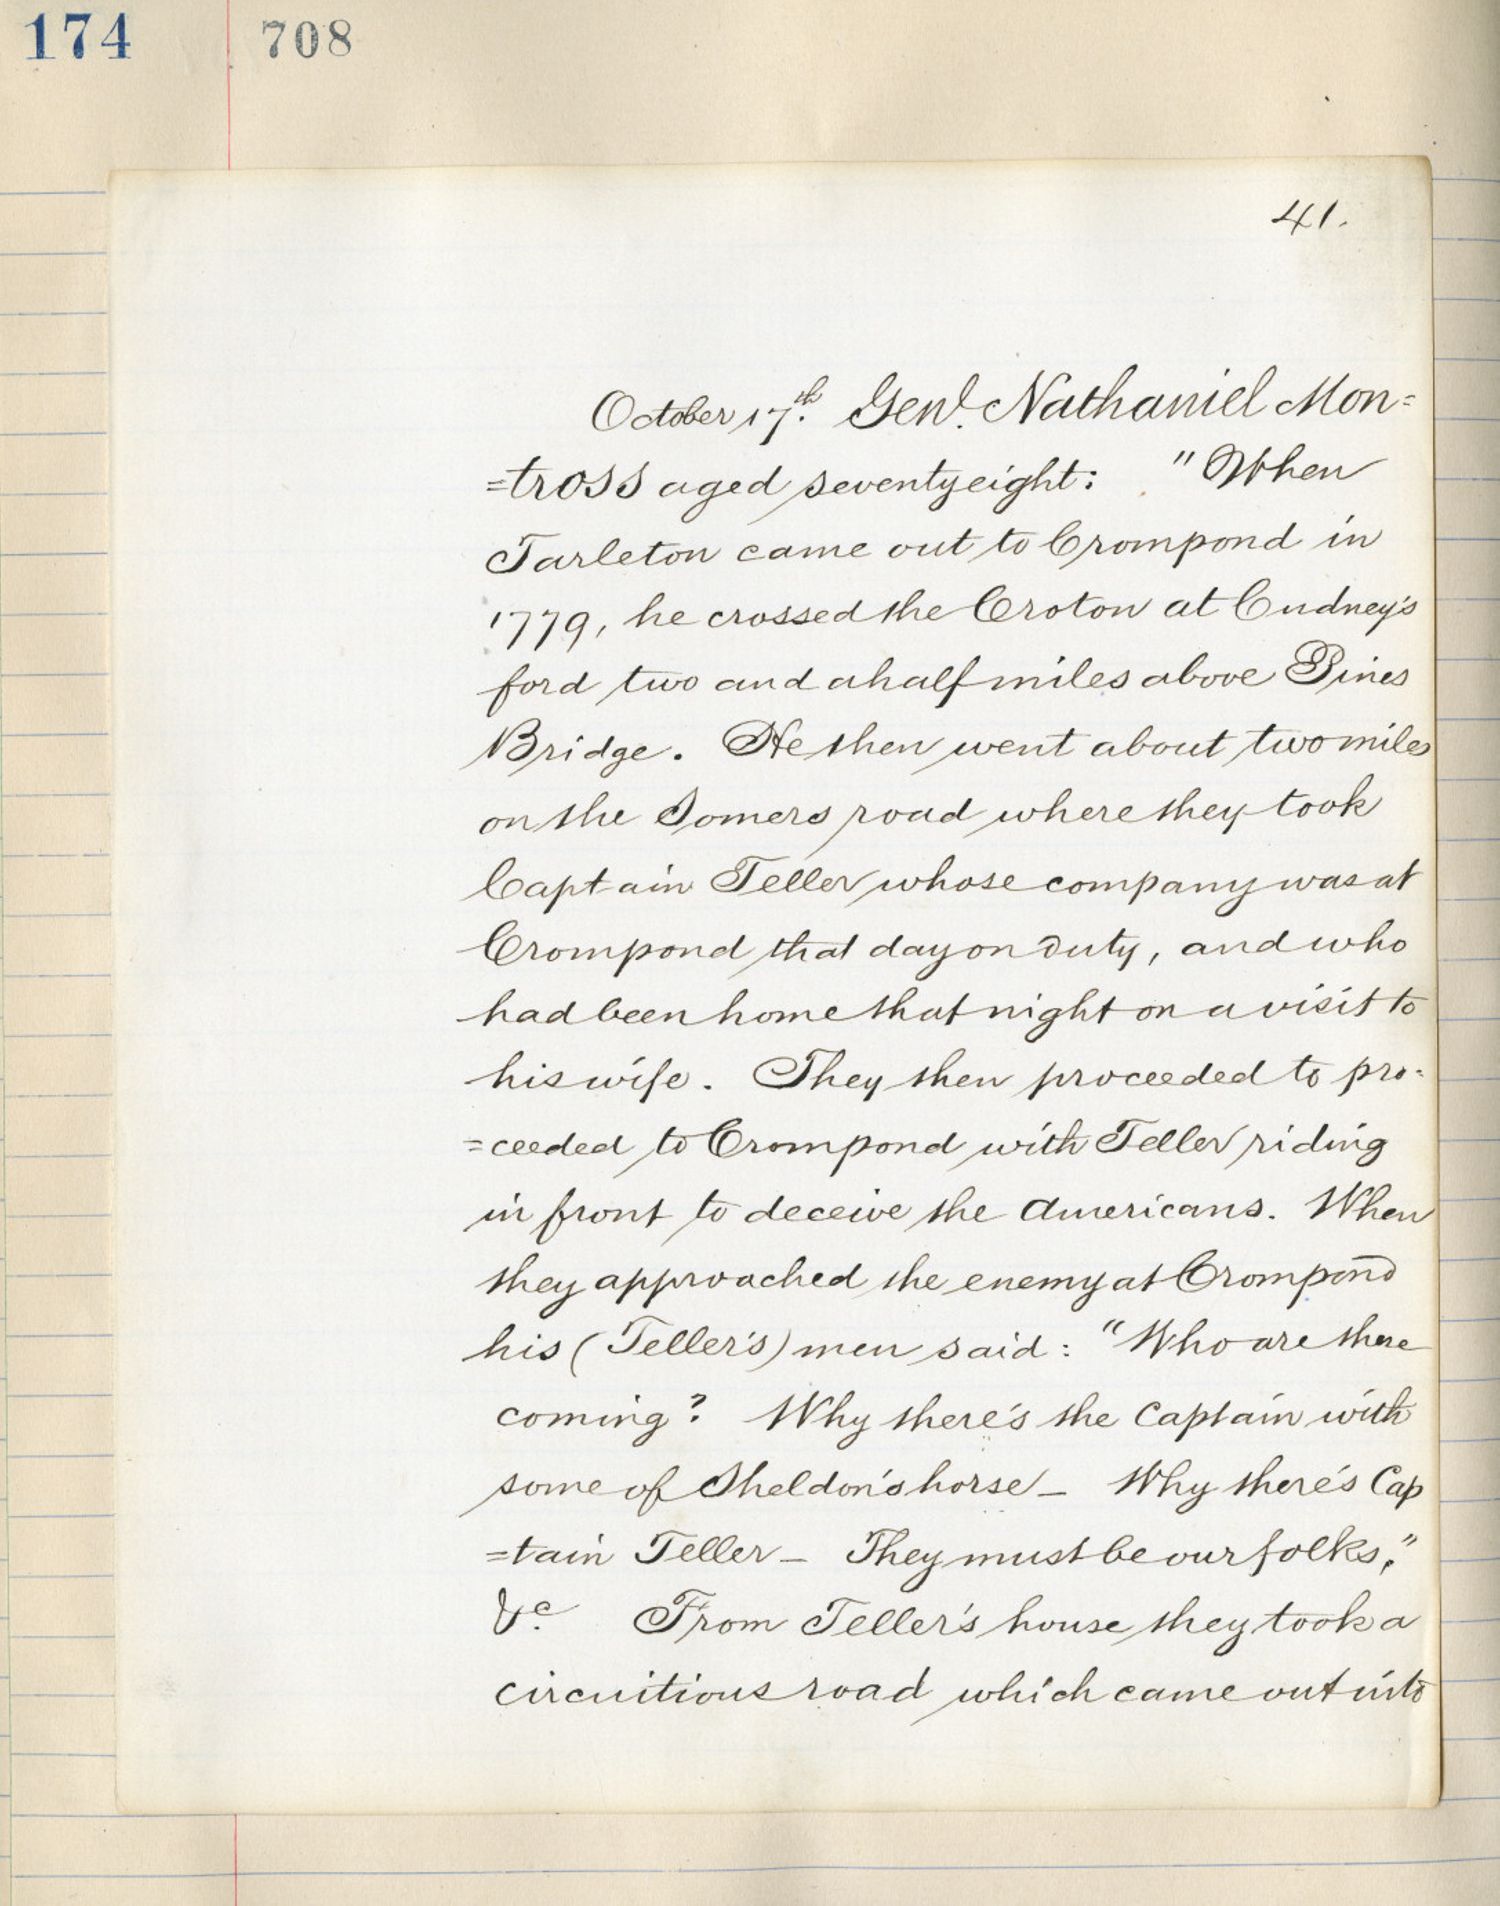 174 708
41.
October 17th. Genl. Nathaniel Mon=
=tross aged seventyeight: "When
Tarleton came out to Crompond in
1779, he crossed the Croton at Cudney's
ford two and a half miles above Pines
Bridge. He then went about two miles
on the Somers road where they took
Captain Teller whose company was at
Crompond that day on duty, and who
had been home that night on a visit to
his wife. They then proceeded to pro-
=ceeded to Crompond with Teller riding
in front to deceive the Americans. When
they approached the enemy at Crompond
his (Teller's) men said: "Who are there
coming? Why there's the Captain with
some of Sheldon's horse_ Why there's Cap
=tain Teller_ They must be our folks,"
&c. From Teller's house they took a
circuitious road which came out into